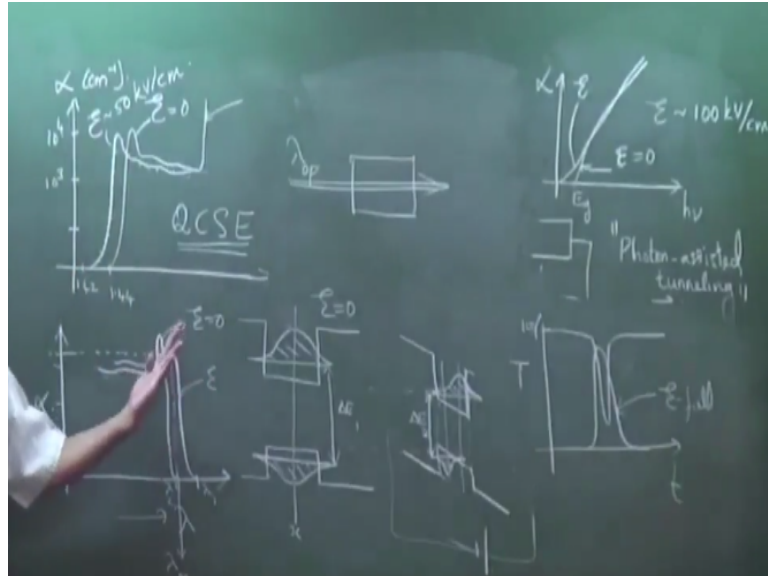 α (cm⁻¹)
ℰ ~ 50 kV/cm
ℰ=0
10⁴
10³
QCSE
1.42
1.44
λop
α
ℰ
ℰ ~ 100 kV/cm
ℰ=0
Eg
hν
"Photon-assisted
tunneling"
ℰ=0
ℰ
α
λ
ℰ=0
ΔE₁
x
ΔE
T
ℰ-field
t